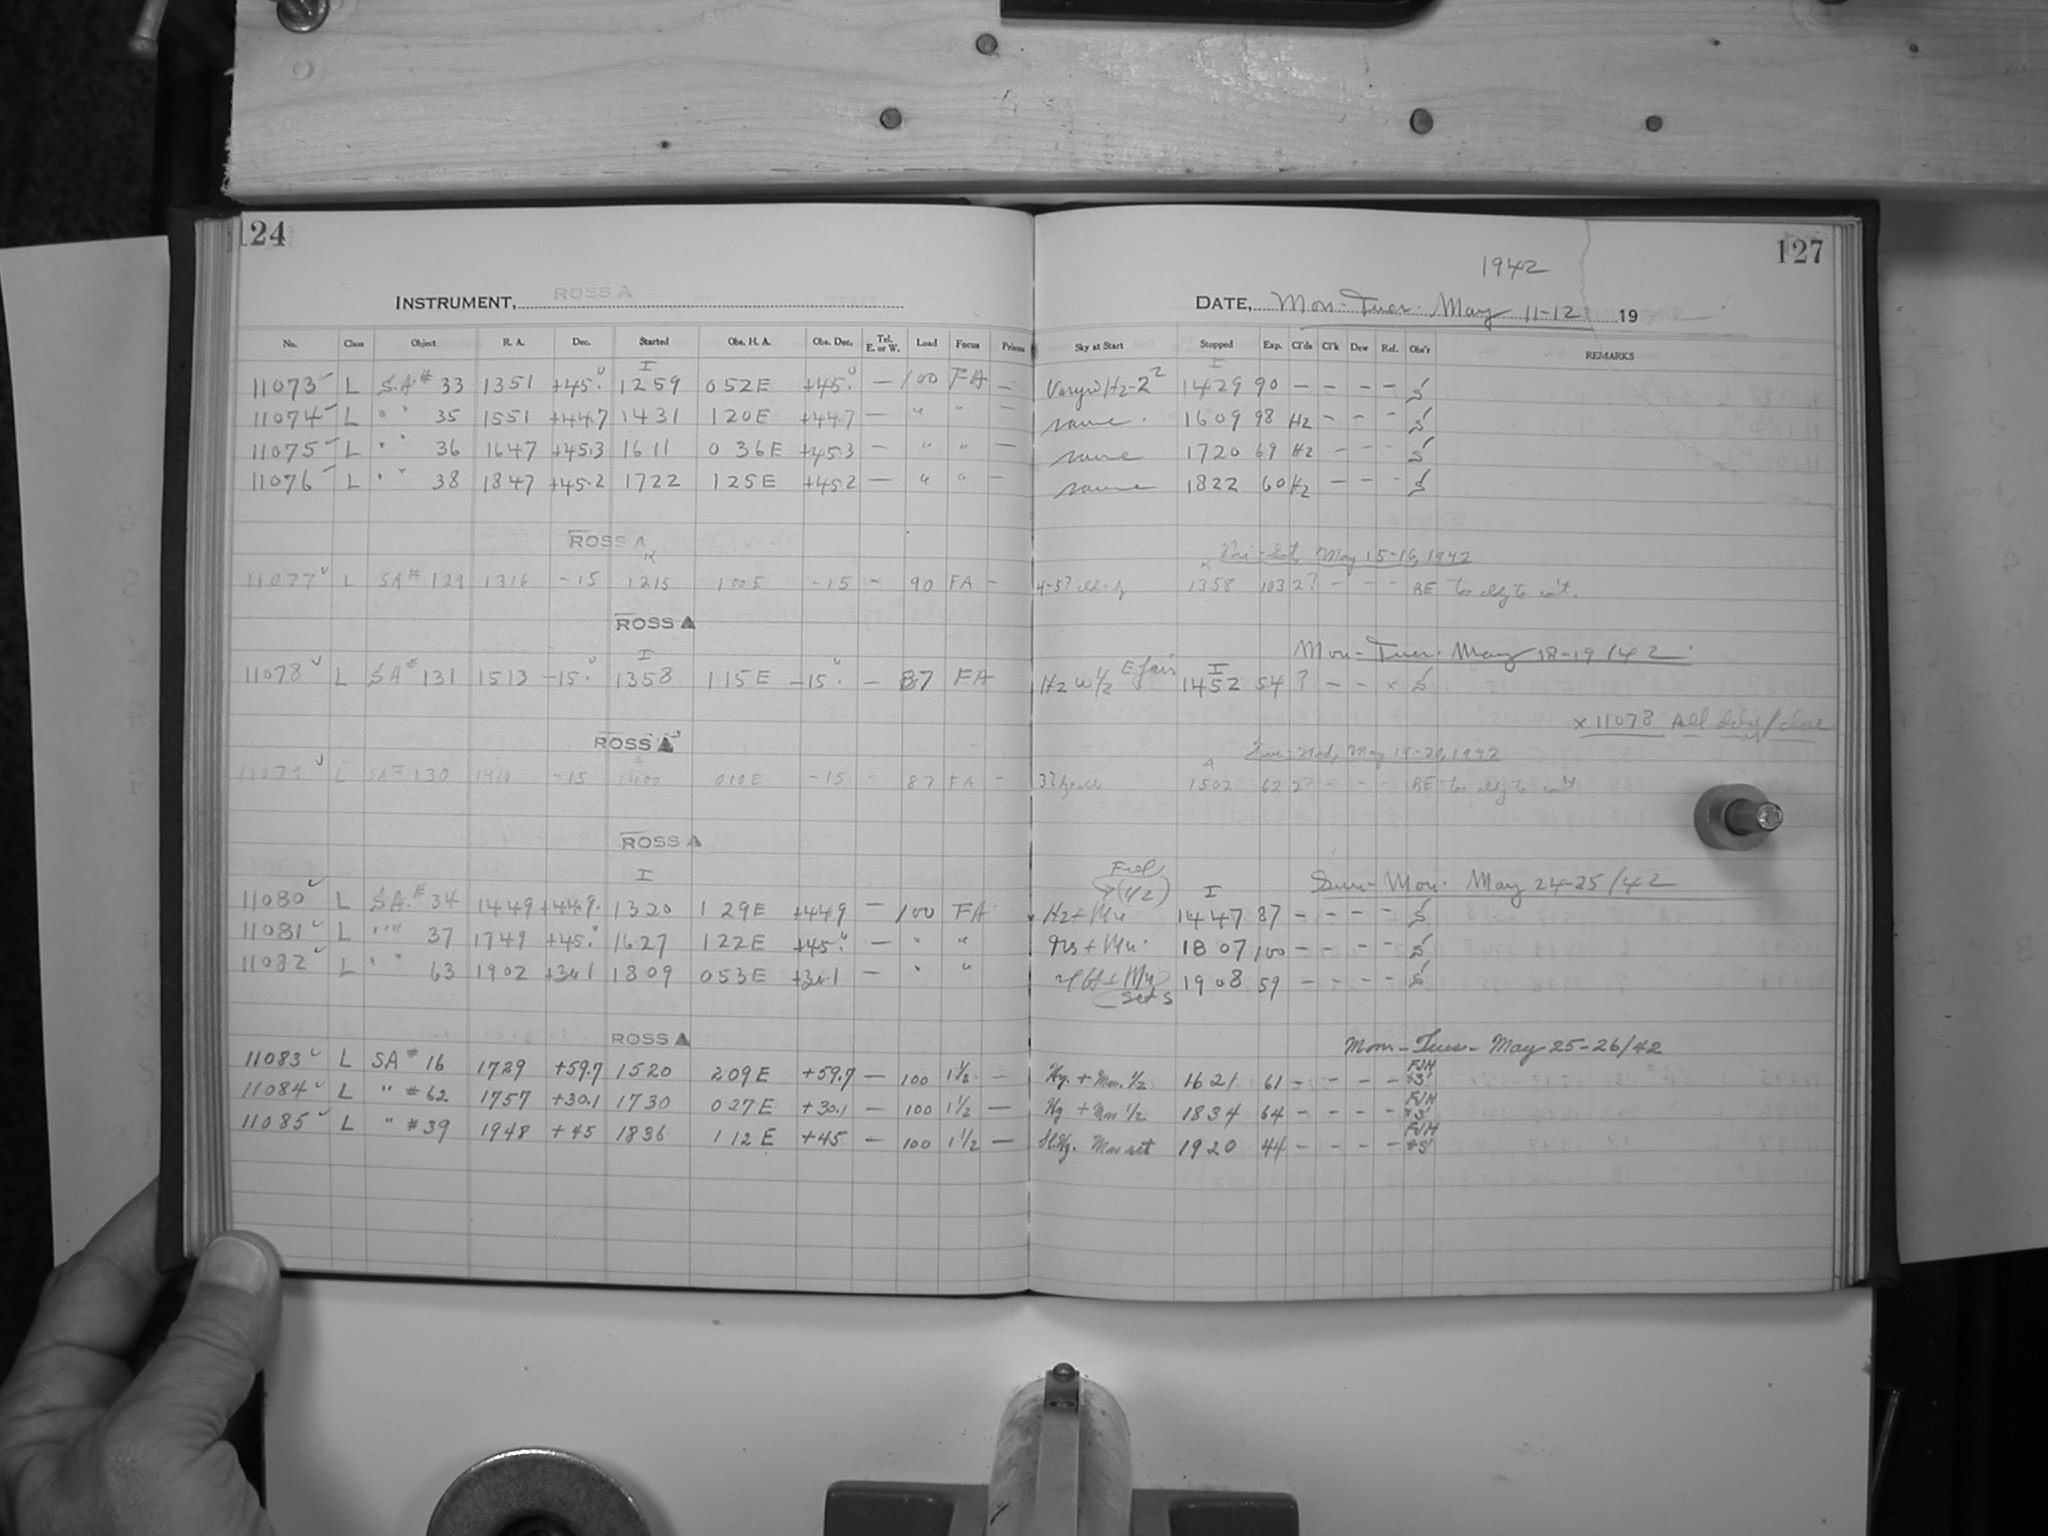 124
127
1942
INSTRUMENT, ROSS A
DATE, Mon-Tues. May 11-12 19
No. Class Object R. A. Dec. Started Obs. H. A. Obs. Dec. Tel. E. or W. Load Focus Prisms Sky at Start Stopped Exp. Cl'ds Cl'k Dew Ref. Obs'r REMARKS
I I
11073 L S.A.# 33 1351 +45.° 1259 052E +45.° — 100 FA — Hz-2 1429 90 – – – – S
11074 L " " 35 1551 +44.7 1431 120E +44.7 — " " — same 1609 98 Hz – – – S
11075 L " " 36 1647 +45.3 1611 036E +45.3 — " " — same 1720 69 Hz – – – S
11076 L " " 38 1847 +45.2 1722 125E +45.2 — " " – same 1822 60 Hz – – – S
ROSS A
Fri-Sat, May 15-16, 1942
11077 L SA# 129 1316 -15 1215 100E -15 – 90 FA – 1358 103 2? – – – RE too cldy to con't.
ROSS A
Mon-Tues. May 18-19/42
I I
11078 L SA# 131 1513 -15.° 1358 115E -15.° — 87 FA Hz W 1/2 E fair 1452 54 ? – – x S
x 11078
ROSS A
Tue-Wed, May 19-20, 1942
11079 L SA# 130 1410 -15 1400 010E -15 – 87 FA – 1502 62 2? – – – RE too cldy to con't
ROSS A
Sun-Mon. May 24-25/42
I (1/2) I
11080 L S.A.# 34 1449 +44.9 1320 129E +44.9 — 100 FA Hz+Mn 1447 87 – – – – S
11081 L " " 37 1749 +45.° 1627 122E +45.° — " " + Mn. 1807 100 – – – – S
11082 L " " 63 1902 +30.1 1809 053E +30.1 — " " + Mn sets 1908 59 – – – – S
ROSS A
Mon-Tues- May 25-26/42
11083 L SA# 16 1729 +59.7 1520 209E +59.7 — 100 1½ — Hz. + Mon. ½ 1621 61 – – – – FJH +S
11084 L " #62 1757 +30.1 1730 027E +30.1 — 100 1½ — Hz + Mon ½ 1834 64 – – – – FJH +S
11085 L " #39 1948 +45 1836 112E +45 — 100 1½ — Sl.Hz. Mon set 1920 44 – – – – FJH +S